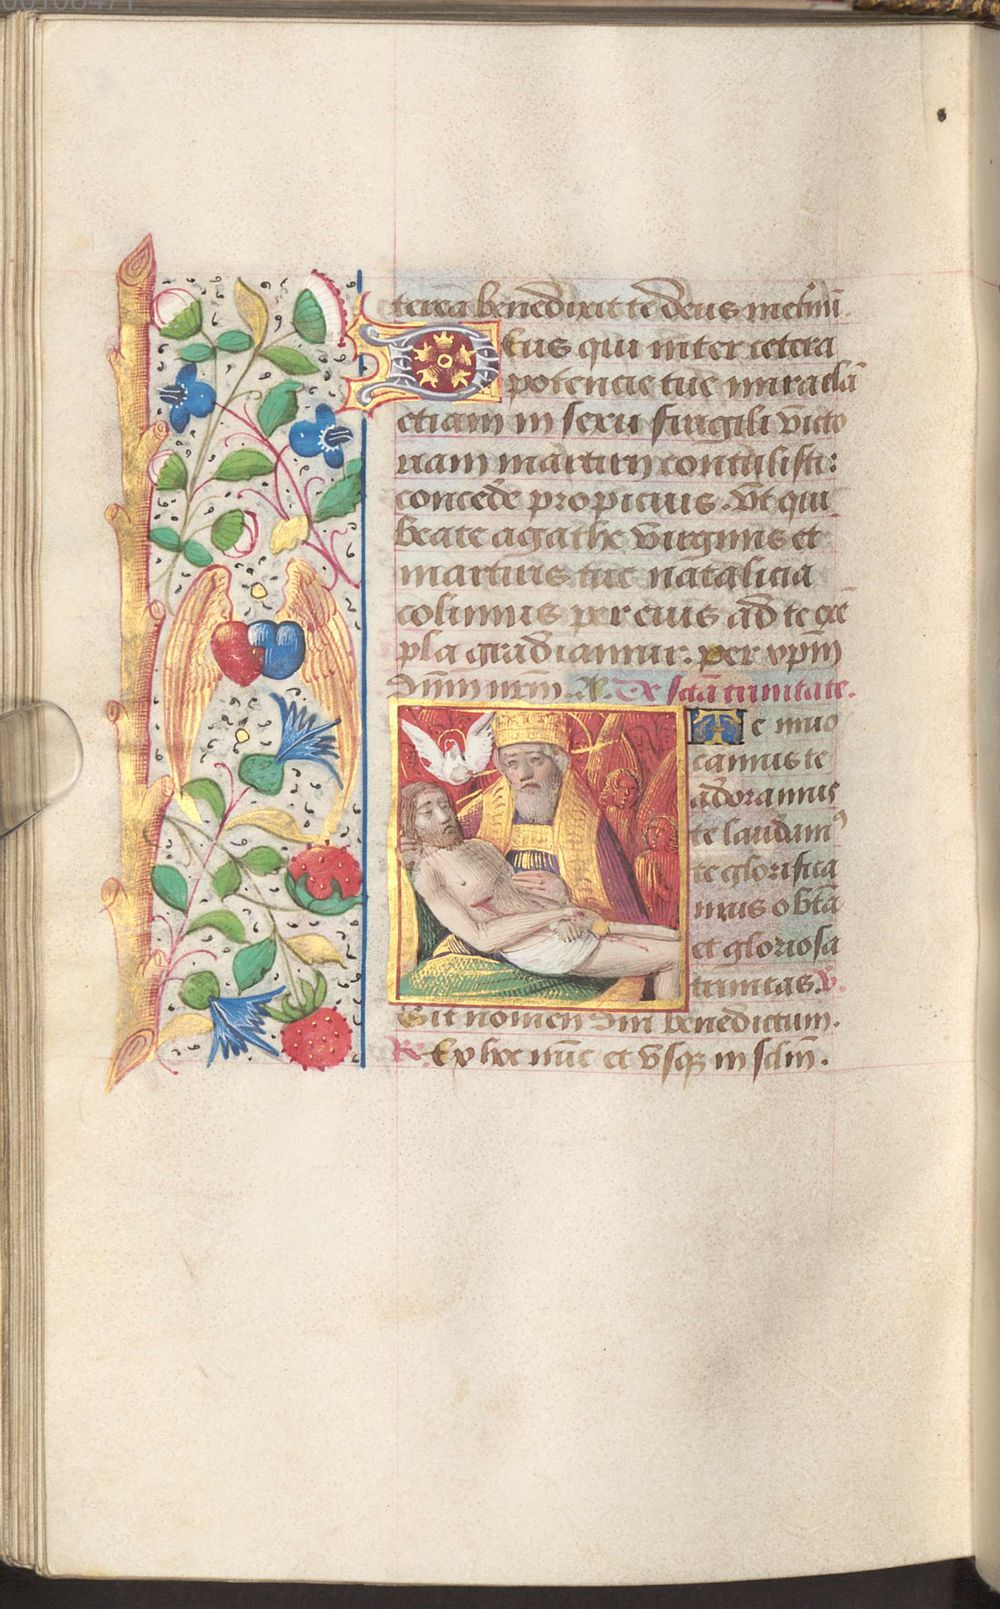 terea benedixit te deus metmū.
Deus qui inter cetera
potencie tue miracla
etiam in sexu fragili victo
riam martirii contulisti:
concede propicius. Vt qui
beate agathe virginis et
martiris tue natalicia
colimus per eius ad te exē
pla gradiamur. per xp̄m
dn̄m nr̄m. A. De sctā trinitate.
Te inuo
camus te
adoramus
te laudamꝰ
te glorifica
mus o bt̄a
et gloriosa
trinitas. v̄.
Sit nomen dn̄i benedictum.
R. Ex hoc nūc et vsqꝫ in sclm̄.